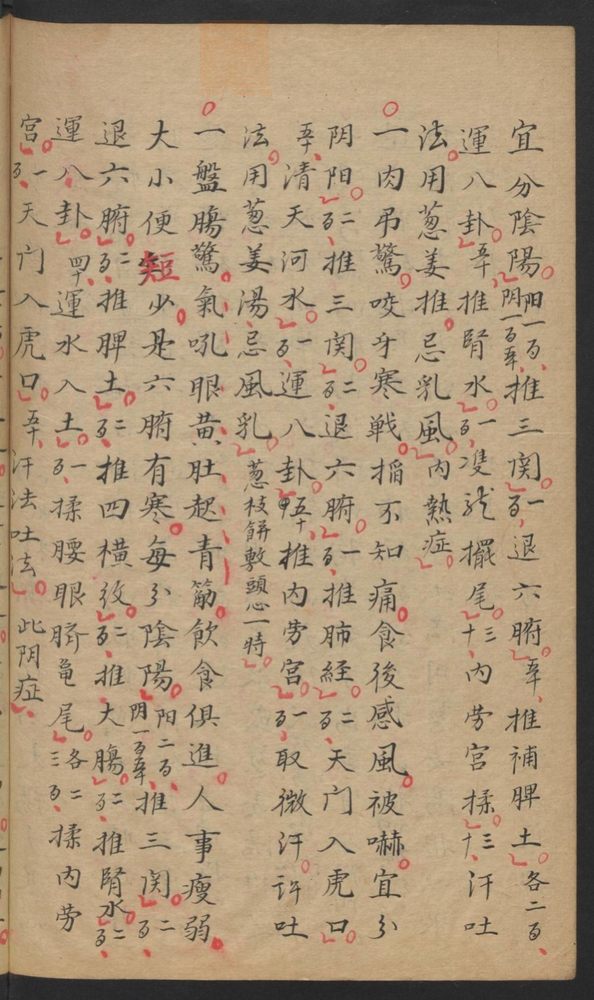 宜分陰陽阳一百阴一百五十推三関一百退六腑五十推補脾土各二百
運八卦五十推腎水一百双龙擺尾三十内劳宮揉三十汗吐
法用葱姜推忌乳風内熱症
一肉吊驚咬牙寒戦搯不知痛食後感風被嚇宜分
阴阳二百推三関二百退六腑一百推肺經二百天门入虎口
五十清天河水一百運八卦五十推内劳宮一百取微汗許吐
法用葱姜湯忌風乳葱枝餅敷頭心一時
一盤腸驚氣吼眼黄肚起青筋飲食俱進人事瘦弱
大小便短少是六腑有寒每分陰陽阳二百阴一百五十推三関二百
退六腑二百推脾土二百推四横紋二百推大腸二百推腎水二百
運八卦四十運水入土一百揉腰眼臍亀尾各二三百揉内劳
宮一百天门入虎口五十汗法吐法此阴症